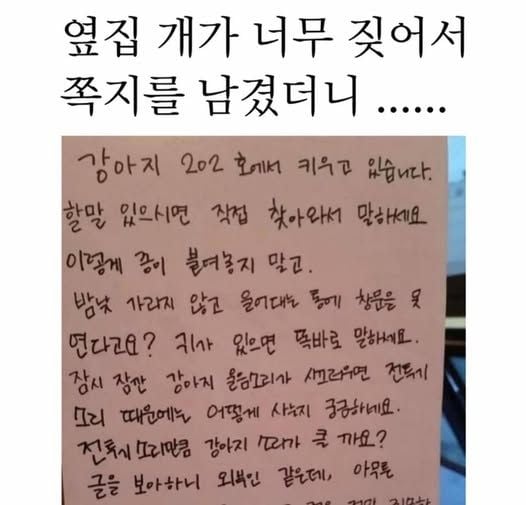 옆집 개가 너무 짖어서
쪽지를 남겼더니 ......
강아지 202 호에서 키우고 있습니다.
할말 있으시면 직접 찾아와서 말하세요
이렇게 종이 붙여놓지 말고.
밤낮 가리지 않고 울어대는 통에 창문을 못
연다고요? 귀가 있으면 똑바로 말하세요.
잠시 잠깐 강아지 울음소리가 시끄러우면 전투기
소리 때문에는 어떻게 사는지 궁금하네요.
전투기 소리만큼 강아지 소리가 클 까요?
글을 보아하니 외부인 같은데, 아무튼